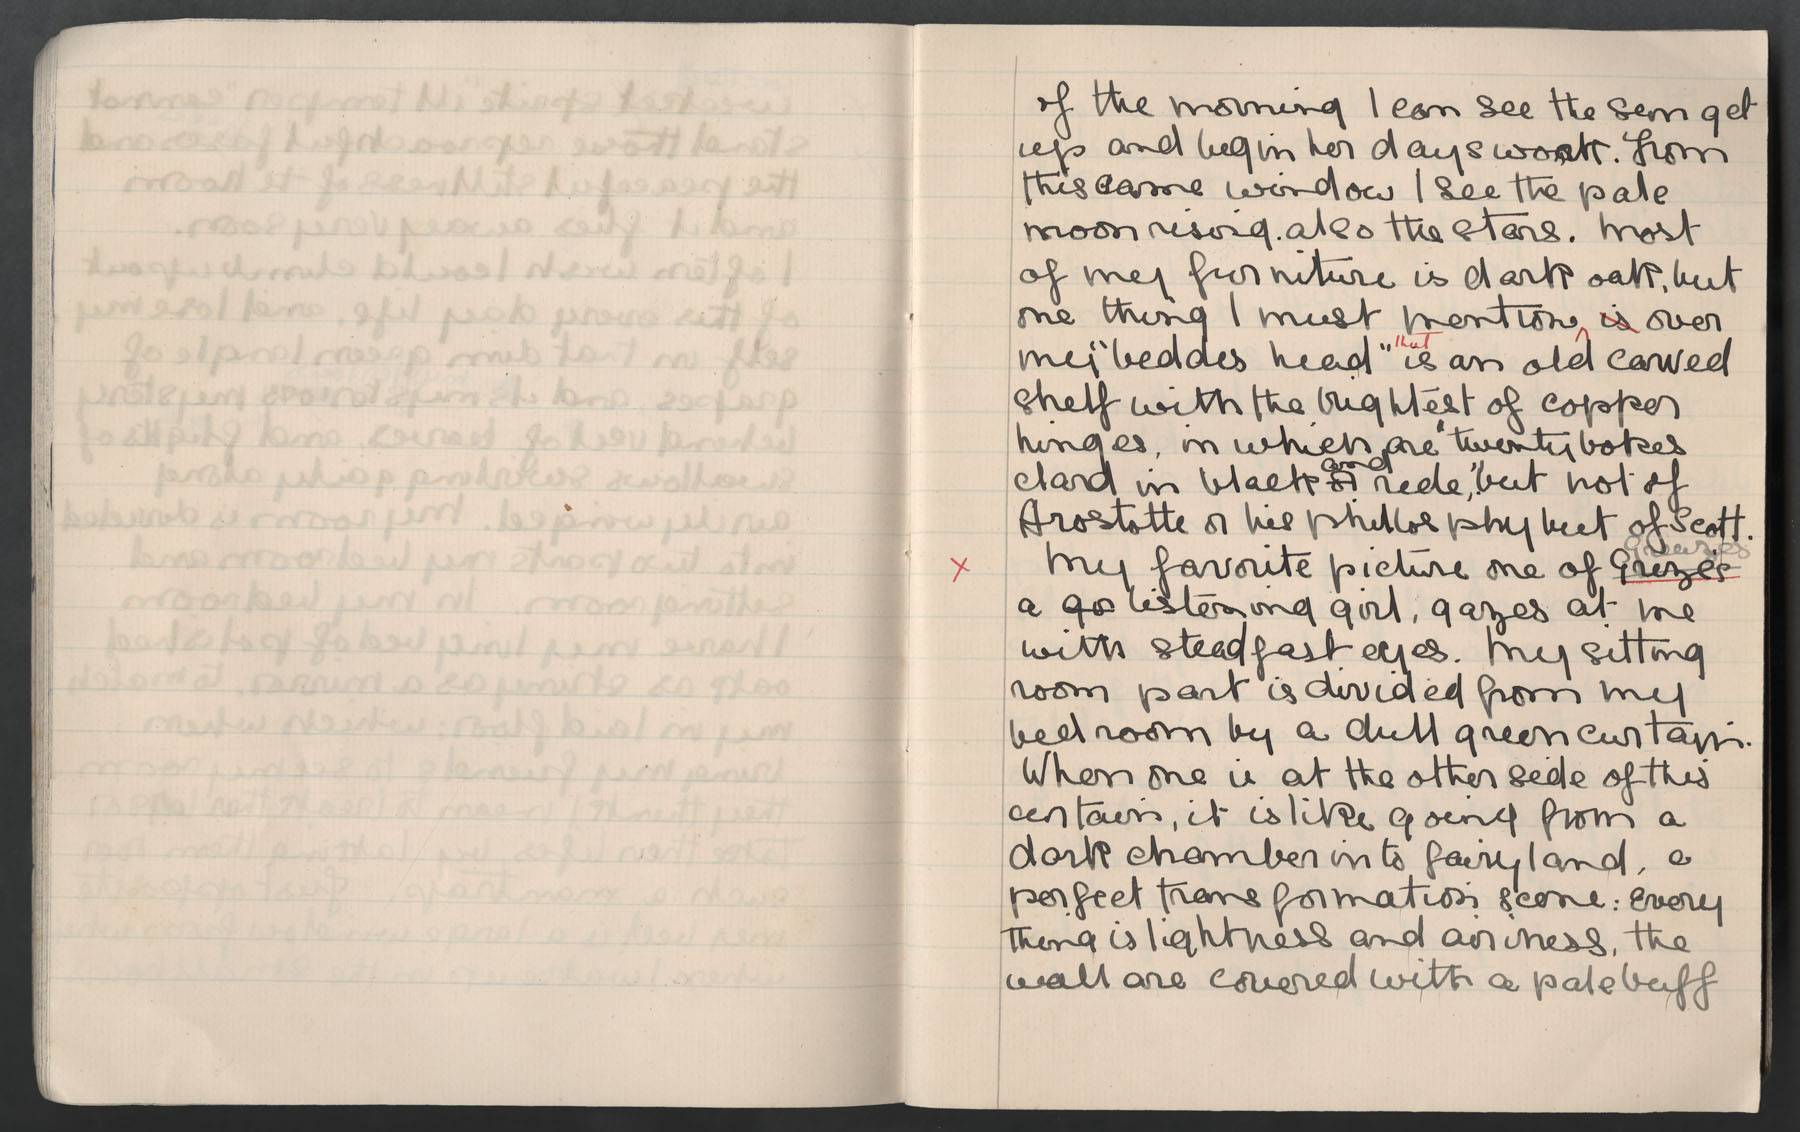 of the morning I can see the sun get
up and begin her days work. From
this same window I see the pale
moon rising. also the stars. Most
of my furniture is dark oak, but
one thing I must mention, is over
my "beddes head" that is an old carved
shelf with the brightest of copper
hinges, in which are "twenty bokes
clard in black and rede," but not of
Arostotte or his phillosphy but of Scott.
Greuzes
x My favorite picture one of Grezes
a listening girl, gazes at me
with steadfast eyes. My sitting
room part is divided from my
bedroom by a dull green curtain.
When one is at the other side of this
curtain, it is like going from a
dark chamber into fairyland, a
perfect transformation scene: every
thing is lightness and airiness, the
wall are covered with a pale buff